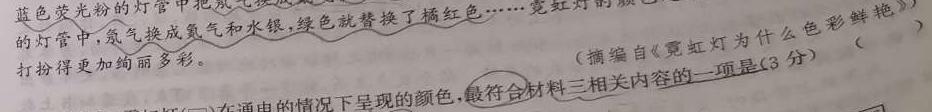 蓝色荧光粉的灯管中把氖气换成
的灯管中,氖气换成氦气和水银,绿色就替换了橘红色……霓虹灯的颜色
打扮得更加绚丽多彩。
(摘编自《霓虹灯为什么色彩鲜艳》)
在通电的情况下呈现的颜色,最符合材料三相关内容的一项是(3分) ( )